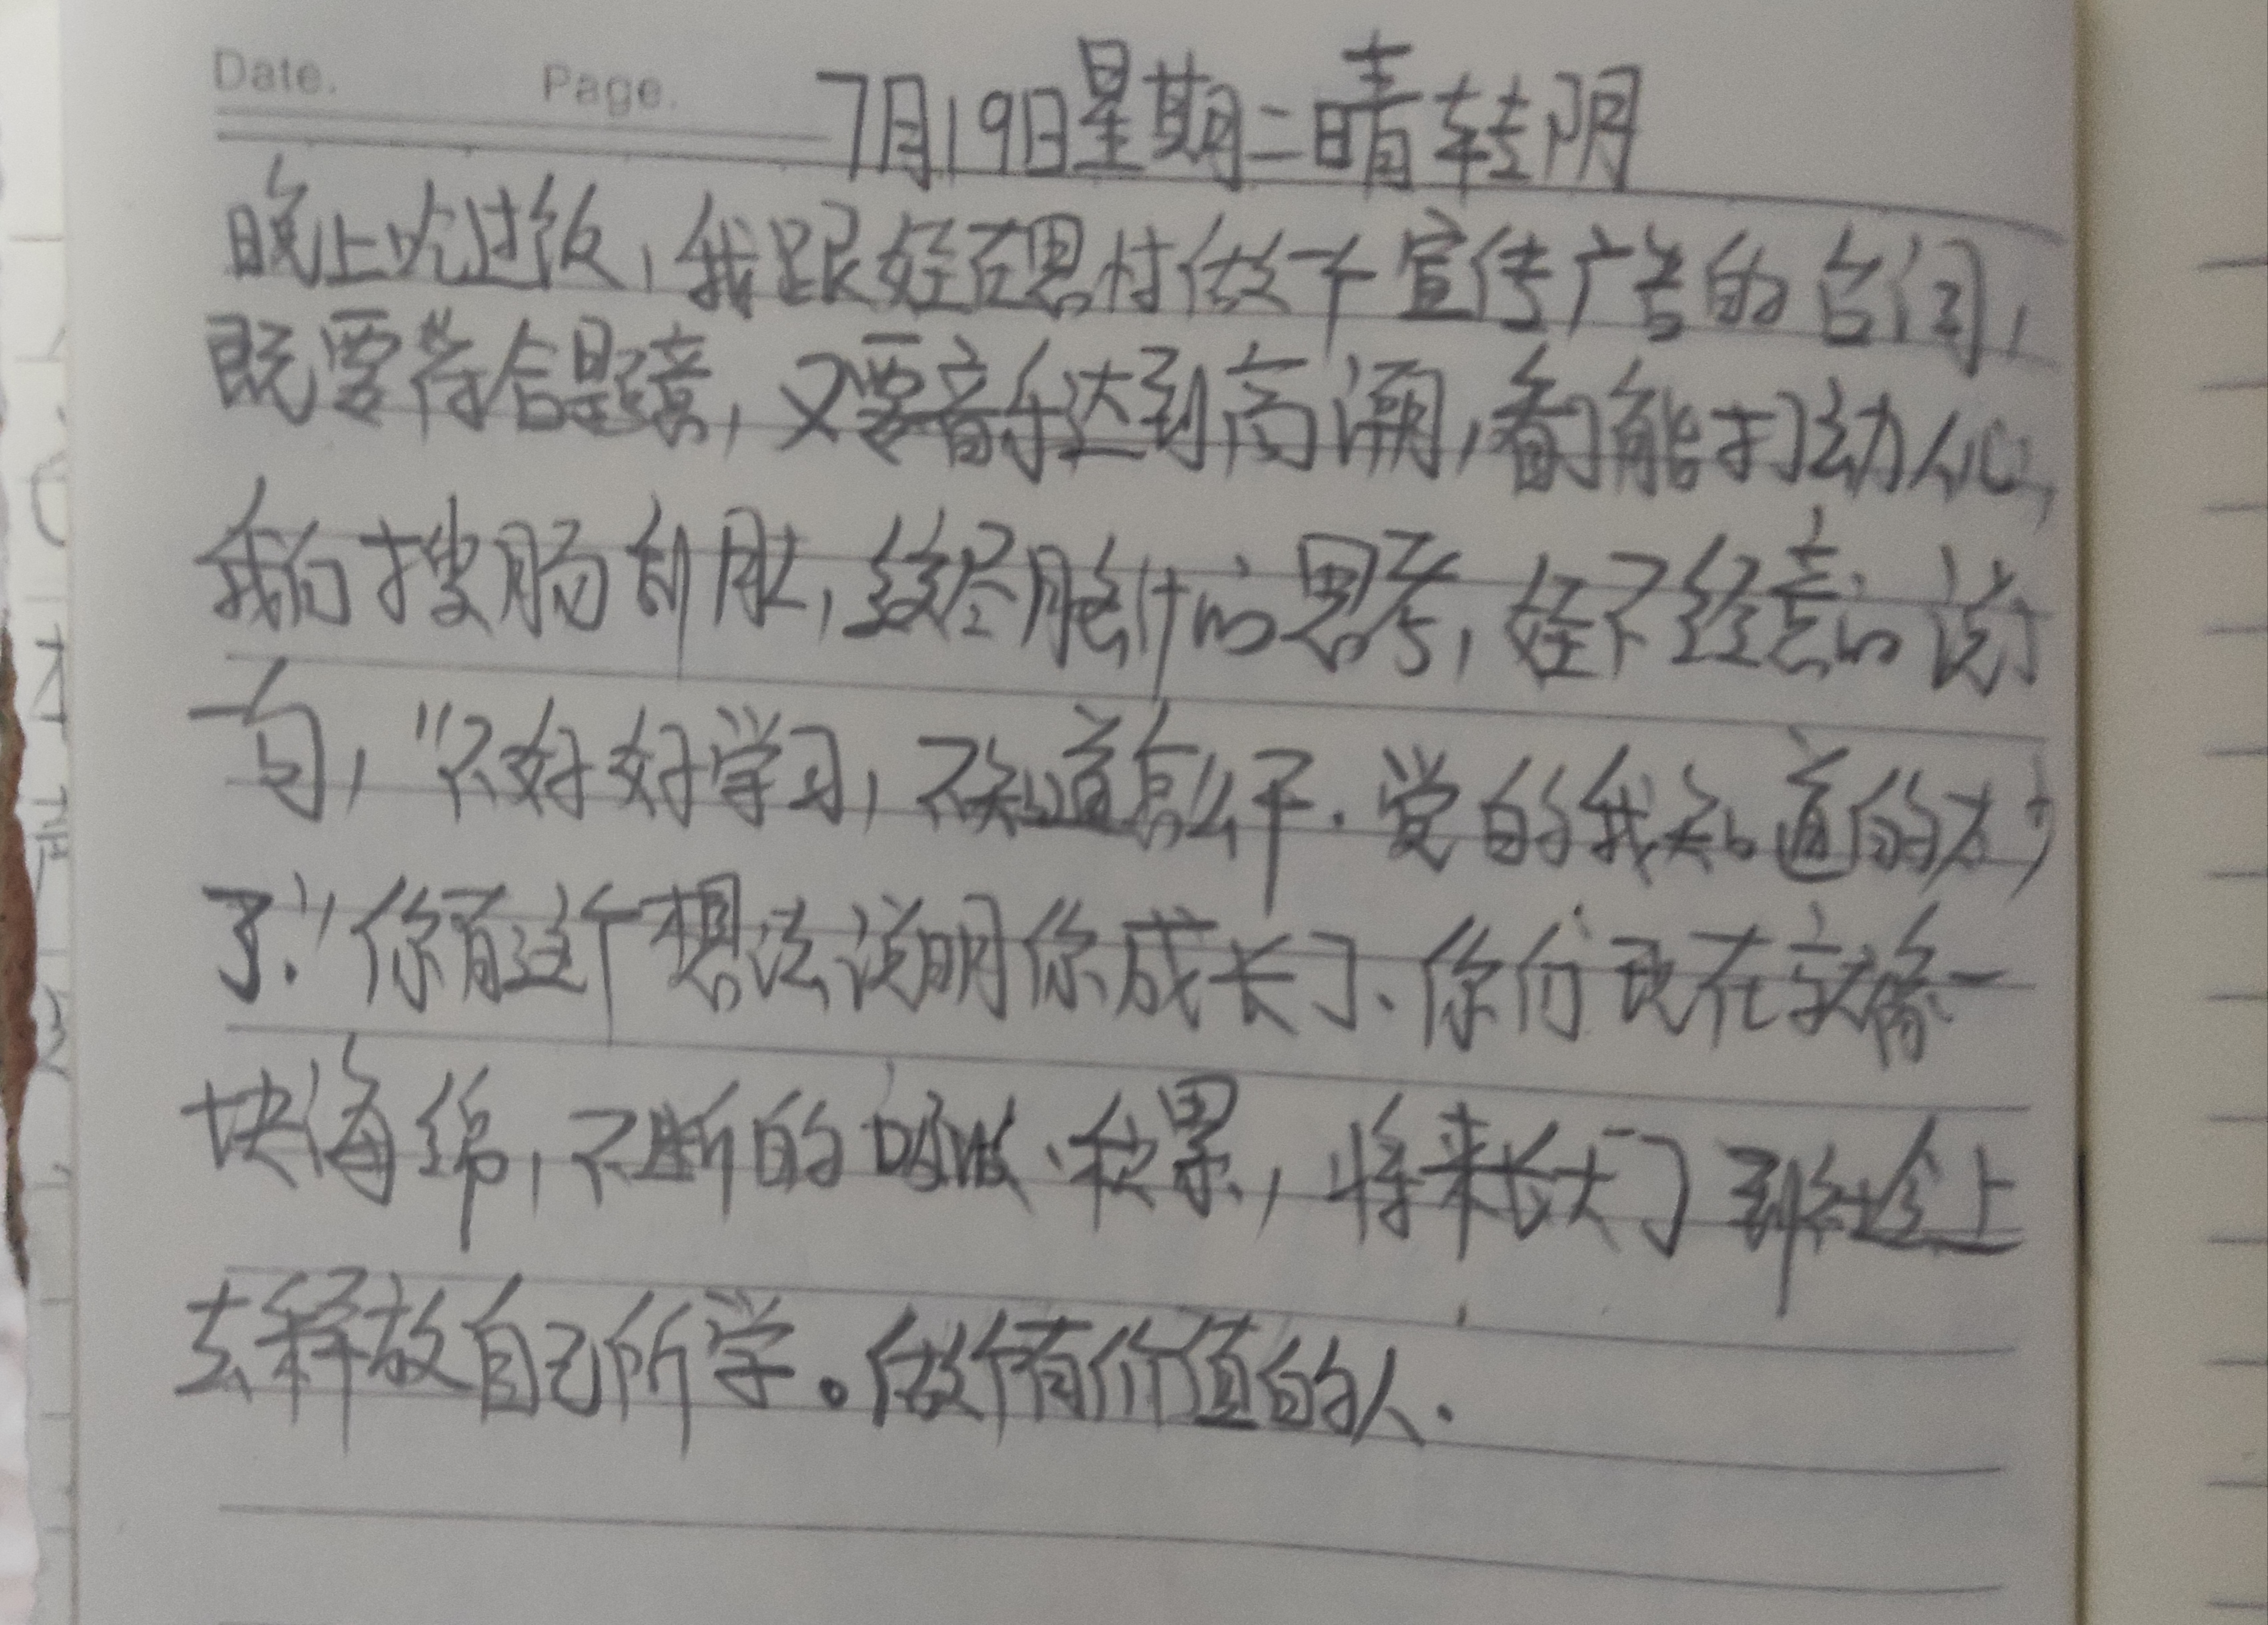 Date. Page. 7月19日星期二晴转阴
晚上吃过饭,我跟 在思忖做一个宣传广告的台词,
既要符合题意,又要音乐达到高潮,看能打动人心,
我们搜肠刮肚,绞尽脑汁的思考, 不经意的说
一句,"不好好学习,不知道怎么干.觉的我知道的太少
了."你有这个想法说明你成长了、你们现在就像一
块海绵,不断的吸收、积累,将来长大了到社会上
去释放自己所学。做个有价值的人.